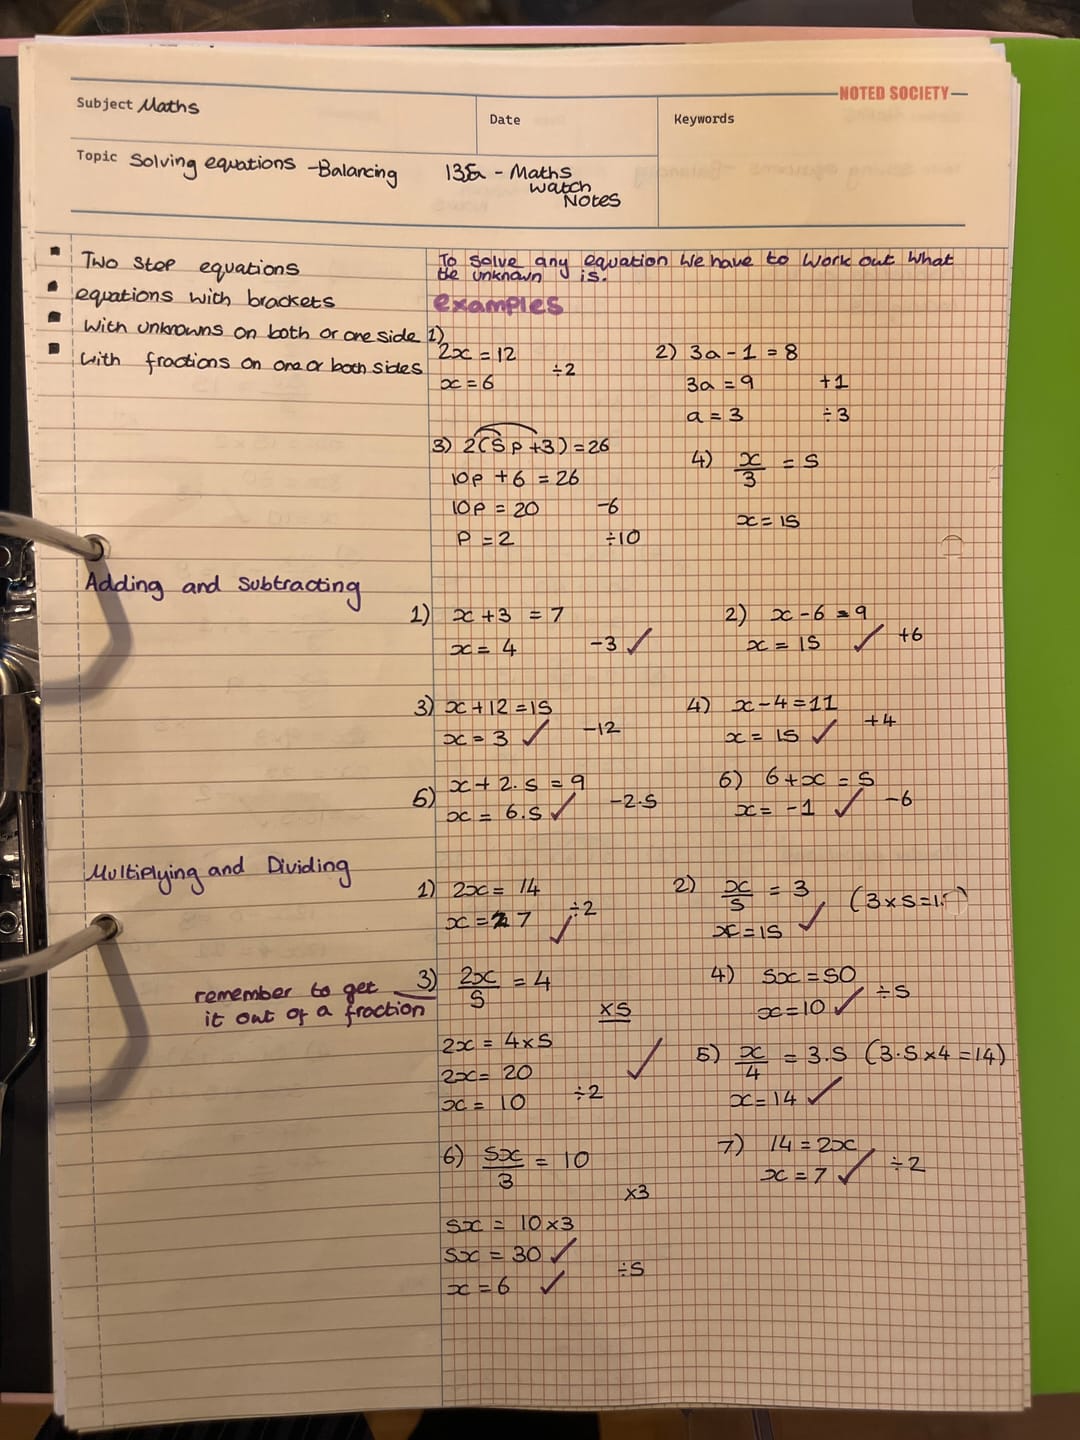 NOTED SOCIETY
Subject Maths
Date
Keywords
Topic Solving equations -Balancing
- Maths
watch
Notes
Two step equations
equations with brackets
with unknowns on both or one side
with fractions on one or both sides
To solve any equation we have to work out what
the unknown is.
examples
1)
2x = 12
÷2
x = 6
2) 3a - 1 = 8
3a = 9 +1
a = 3 ÷3
3) 2(5p +3) = 26
10p + 6 = 26
10p = 20 -6
p = 2 ÷10
4) x/3 = 5
x = 15
Adding and Subtracting
1) x + 3 = 7
x = 4 -3 ✓
2) x - 6 = 9
x = 15 ✓ +6
3) x + 12 = 15
x = 3 ✓ -12
4) x - 4 = 11
x = 15 ✓ +4
5) x + 2.5 = 9
x = 6.5 ✓ -2.5
6) 6 + x = 5
x = -1 ✓ -6
Multiplying and Dividing
1) 2x = 14
x = 7 ✓ ÷2
2) x/5 = 3 (3 x 5 =
x = 15 ✓
remember to get
it out of a fraction
3) 2x/5 = 4
x5
2x = 4x5
2x = 20 ✓
x = 10 ÷2
4) 5x = 50
x = 10 ✓ ÷5
5) x/4 = 3.5 (3.5 x 4 = 14)
x = 14 ✓
6) 5x/3 = 10
x3
5x = 10x3
5x = 30 ✓
x = 6 ✓ ÷5
7) 14 = 2x
x = 7 ✓ ÷2